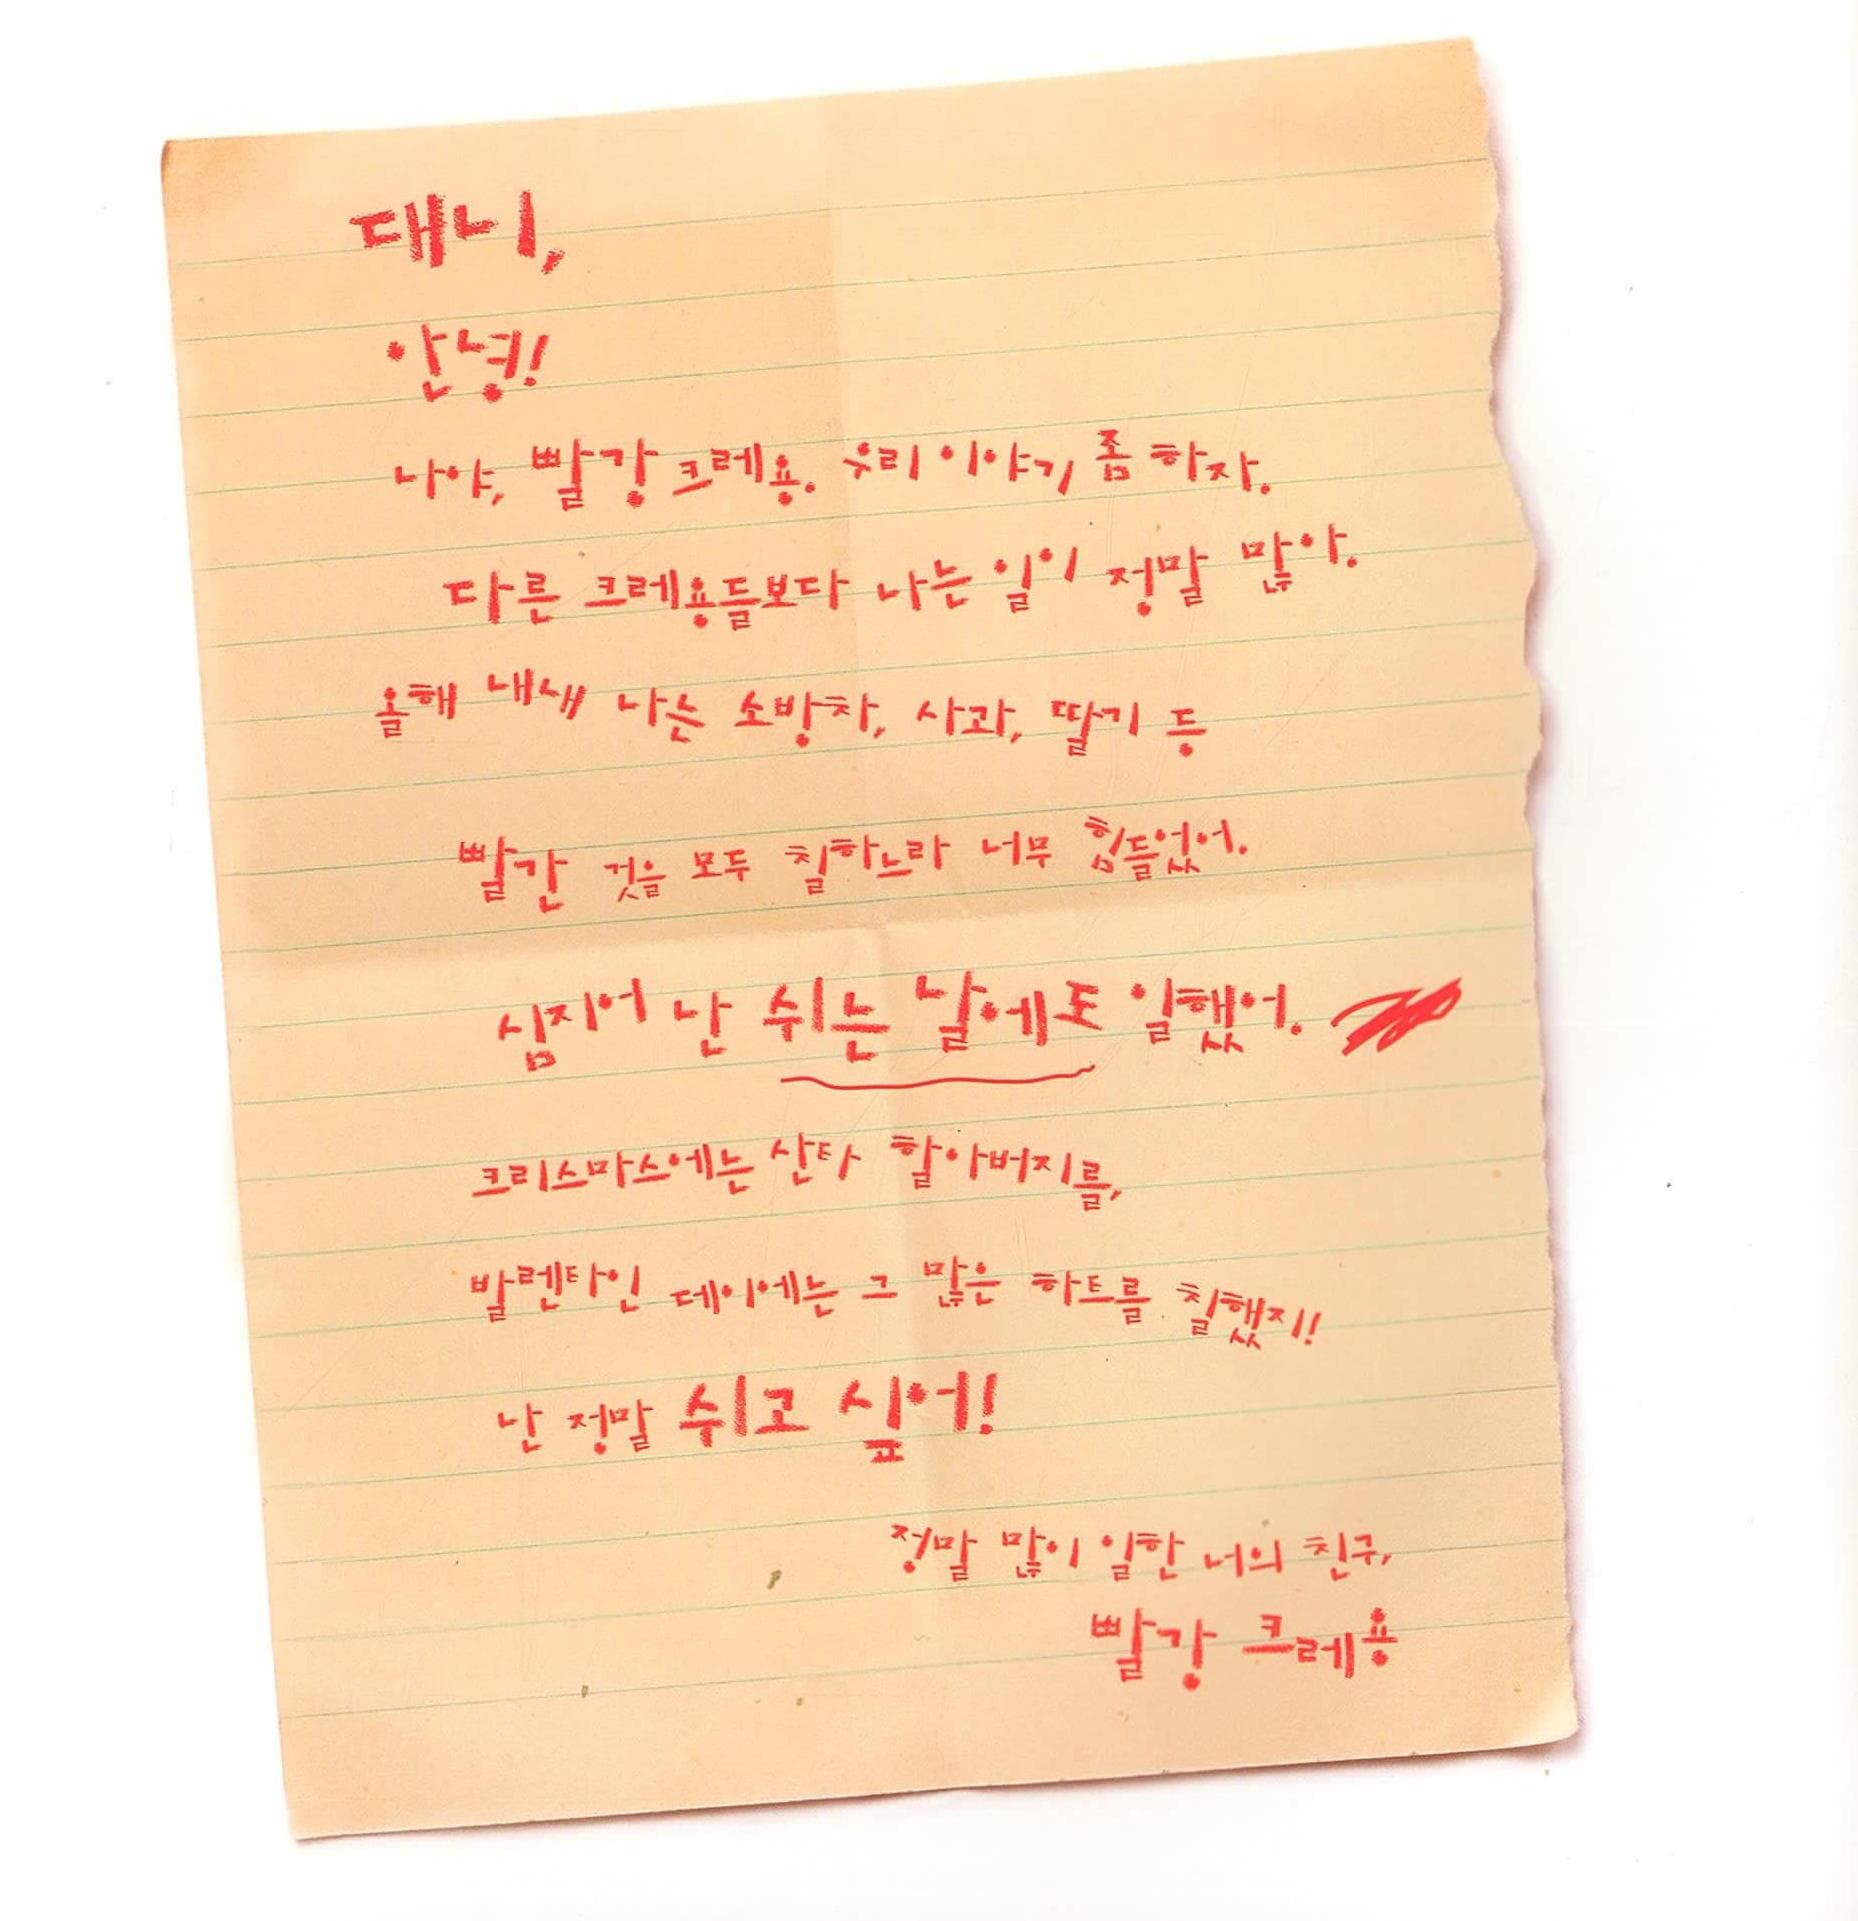 대니,
안녕!
나야, 빨강 크레용. 우리 이야기 좀 하자.
다른 크레용들보다 나는 일이 정말 많아.
올해 내내 나는 소방차, 사과, 딸기 등
빨간 것을 모두 칠하느라 너무 힘들었어.
심지어 난 쉬는 날에도 일했어.
크리스마스에는 산타 할아버지를,
발렌타인 데이에는 그 많은 하트를 칠했지!
난 정말 쉬고 싶어!
정말 많이 일한 너의 친구,
빨강 크레용